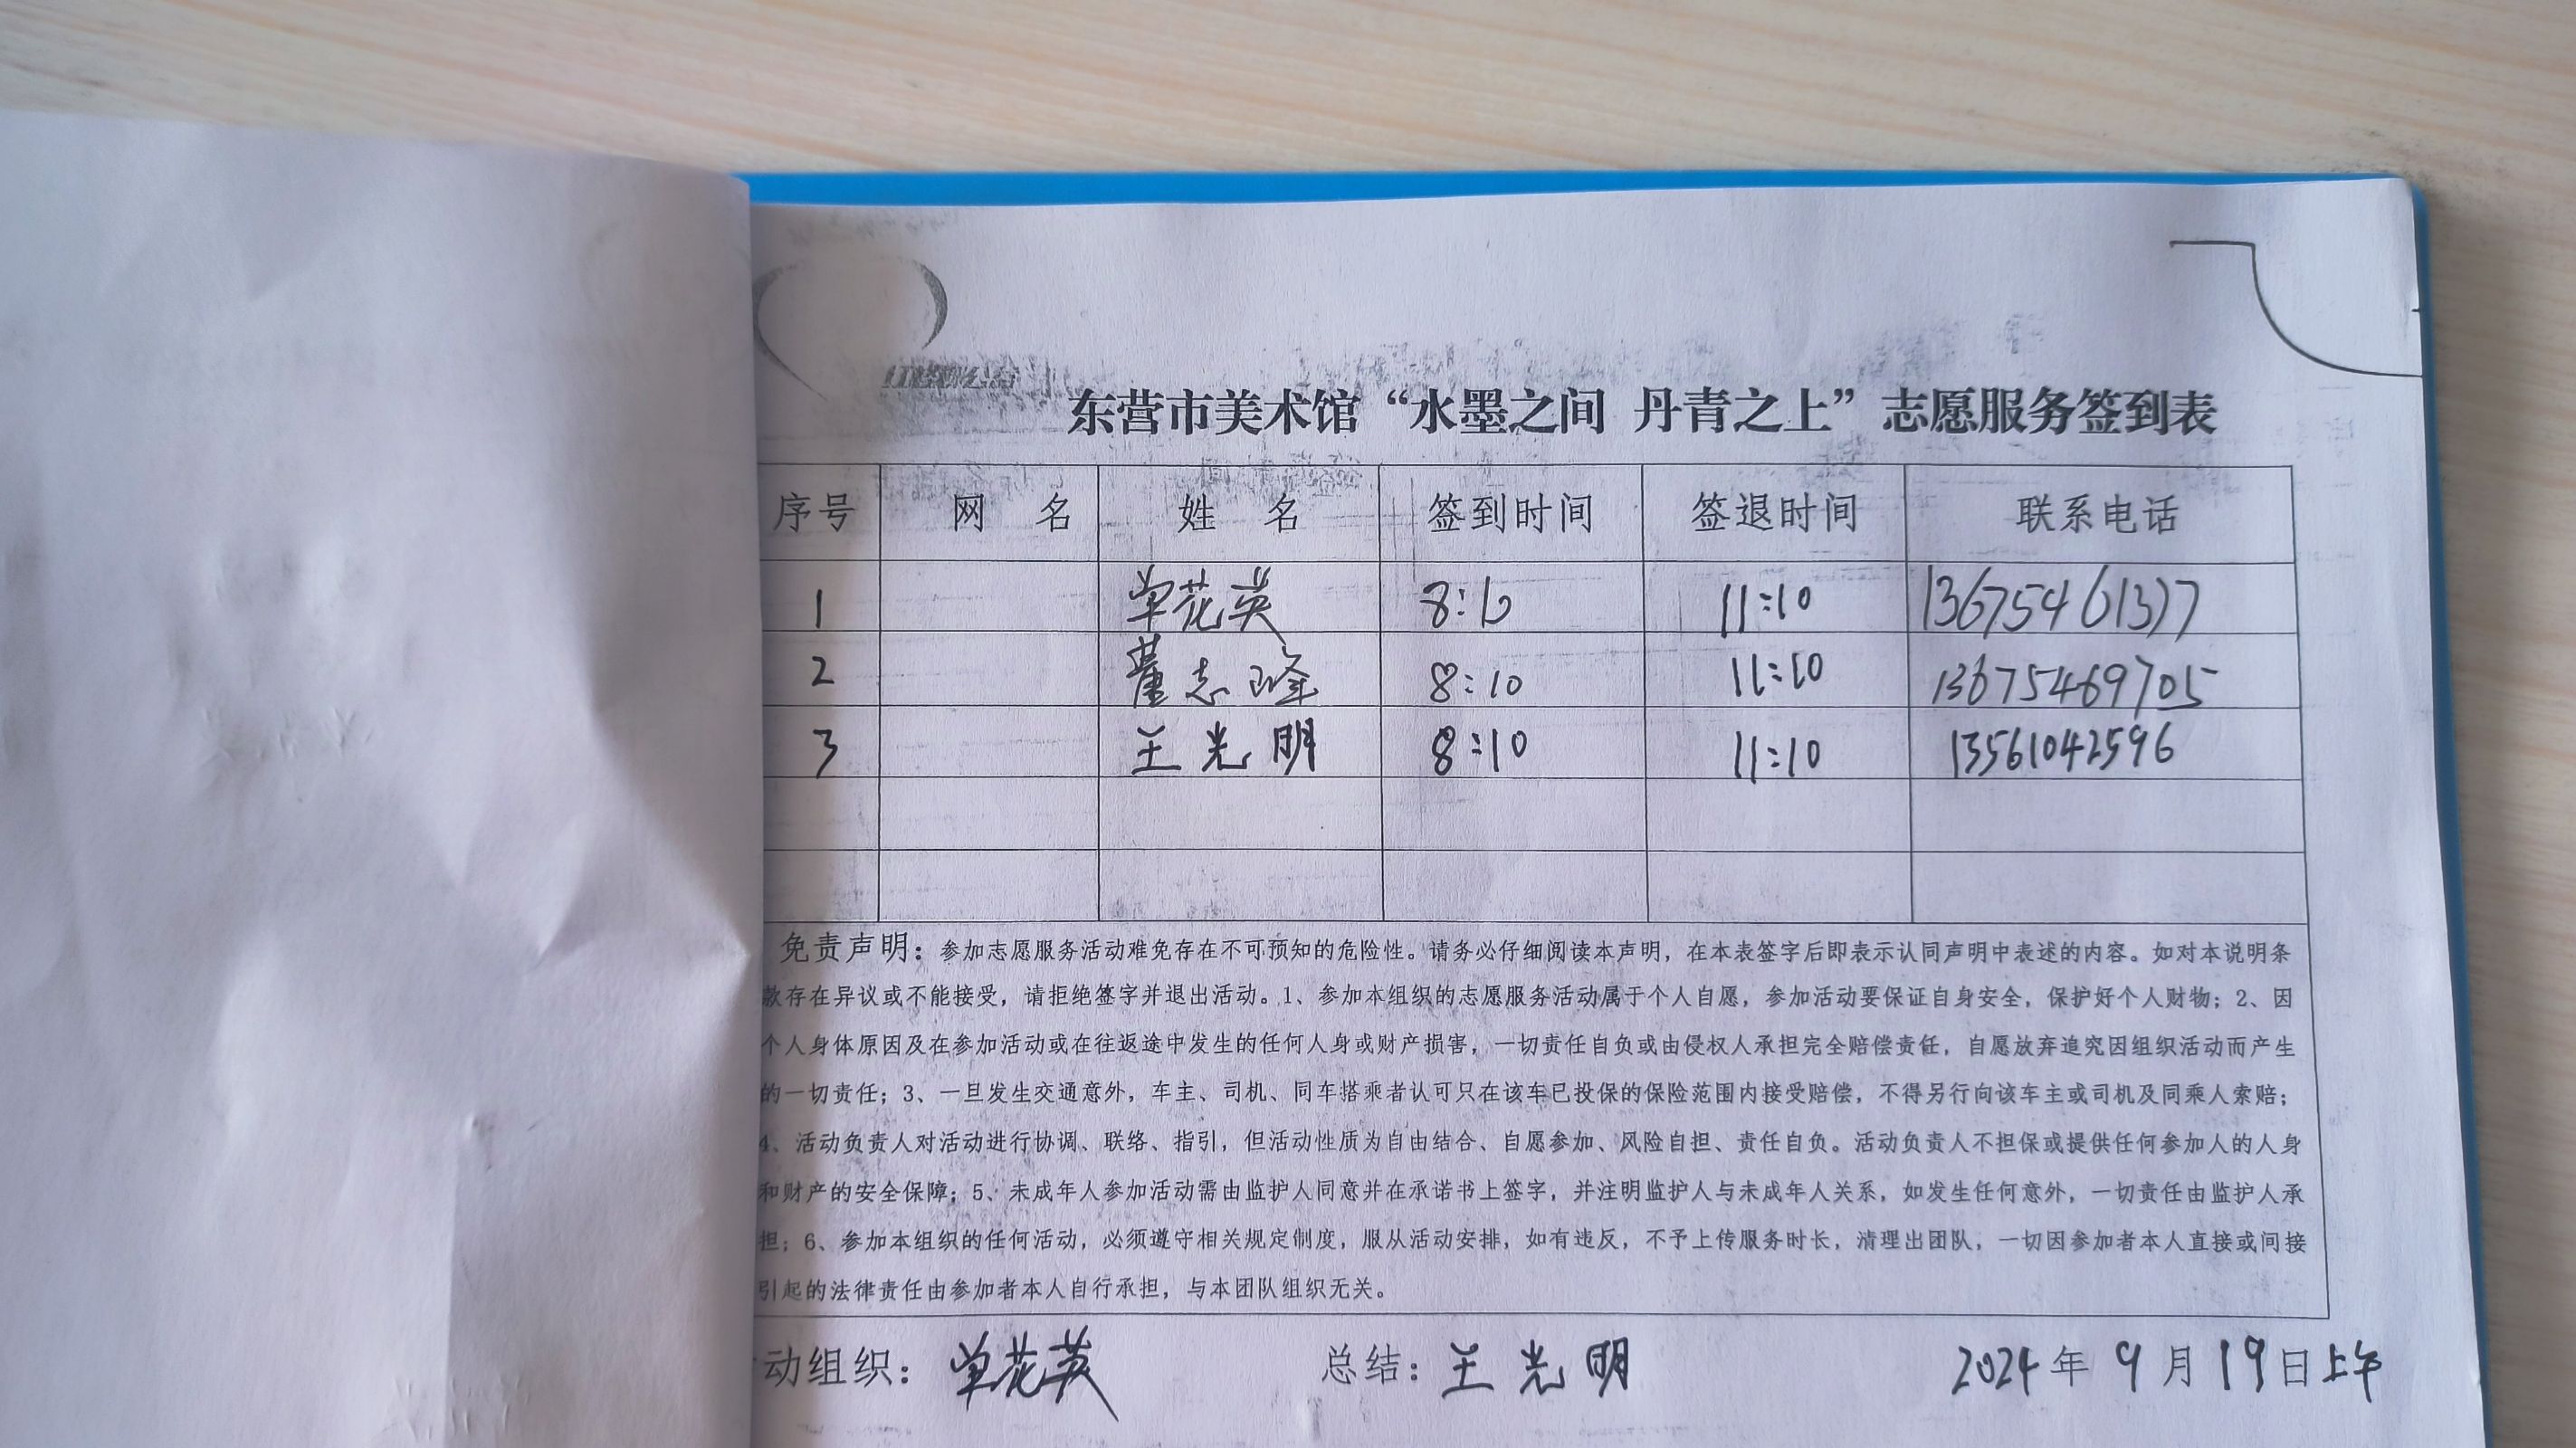 东营市美术馆“水墨之间 丹青之上”志愿服务签到表
序号 网 名 姓 名 签到时间 签退时间 联系电话
1 单花英 8:10 11:10 13675461377
2 董志峰 8:10 11:10 13675469705
3 王光明 8:10 11:10 13561042596
免责声明：参加志愿服务活动难免存在不可预知的危险性。请务必仔细阅读本声明，在本表签字后即表示认同声明中表述的内容。如对本说明条
款存在异议或不能接受，请拒绝签字并退出活动。1、参加本组织的志愿服务活动属于个人自愿，参加活动要保证自身安全，保护好个人财物；2、因
个人身体原因及在参加活动或在往返途中发生的任何人身或财产损害，一切责任自负或由侵权人承担完全赔偿责任，自愿放弃追究因组织活动而产生
的一切责任；3、一旦发生交通意外，车主、司机、同车搭乘者认可只在该车已投保的保险范围内接受赔偿，不得另行向该车主或司机及同乘人索赔；
4、活动负责人对活动进行协调、联络、指引，但活动性质为自由结合、自愿参加、风险自担、责任自负。活动负责人不担保或提供任何参加人的人身
和财产的安全保障；5、未成年人参加活动需由监护人同意并在承诺书上签字，并注明监护人与未成年人关系，如发生任何意外，一切责任由监护人承
担；6、参加本组织的任何活动，必须遵守相关规定制度，服从活动安排，如有违反，不予上传服务时长，清理出团队，一切因参加者本人直接或间接
引起的法律责任由参加者本人自行承担，与本团队组织无关。
动组织：单花英 总结：王光明 2024年9月19日上午